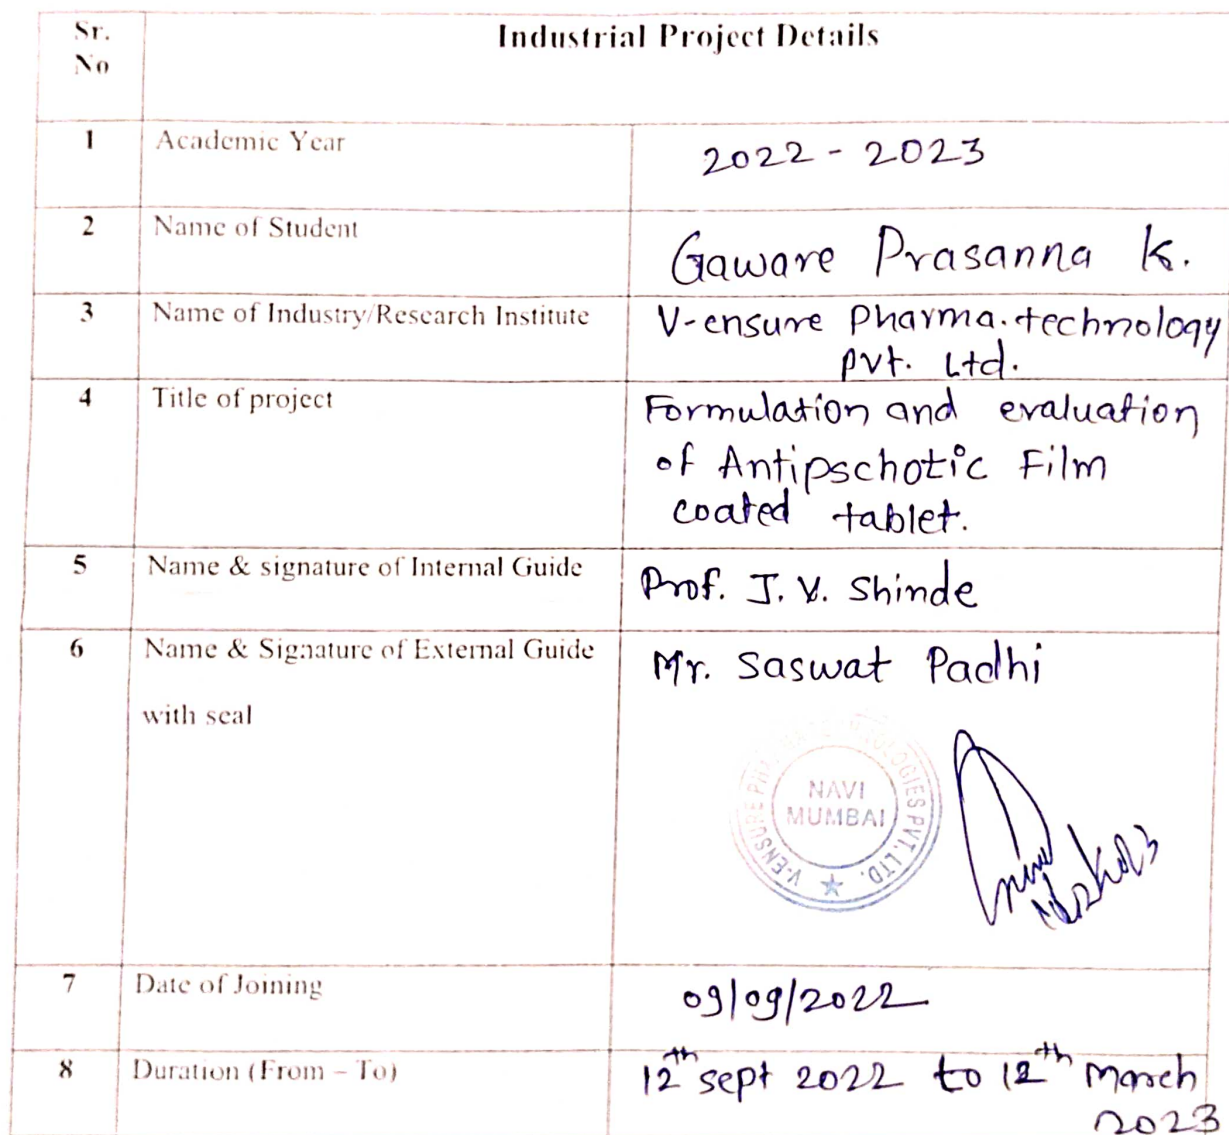 Sr.
No
Industrial Project Details
1
Academic Year
2022 - 2023
2
Name of Student
Gaware Prasanna K.
3
Name of Industry/Research Institute
V-ensure Pharma. technology
pvt. Ltd.
4
Title of project
Formulation and evaluation
of Antipschotic Film
coated tablet.
5
Name & signature of Internal Guide
Prof. J. V. Shinde
6
Name & Signature of External Guide
with seal
Mr. Saswat Padhi
NAVI
MUMBAI
V-ENSURE PVT. LTD.
7
Date of Joining
09/09/2022
8
Duration (From – To)
12th sept 2022 to 12th march
2023